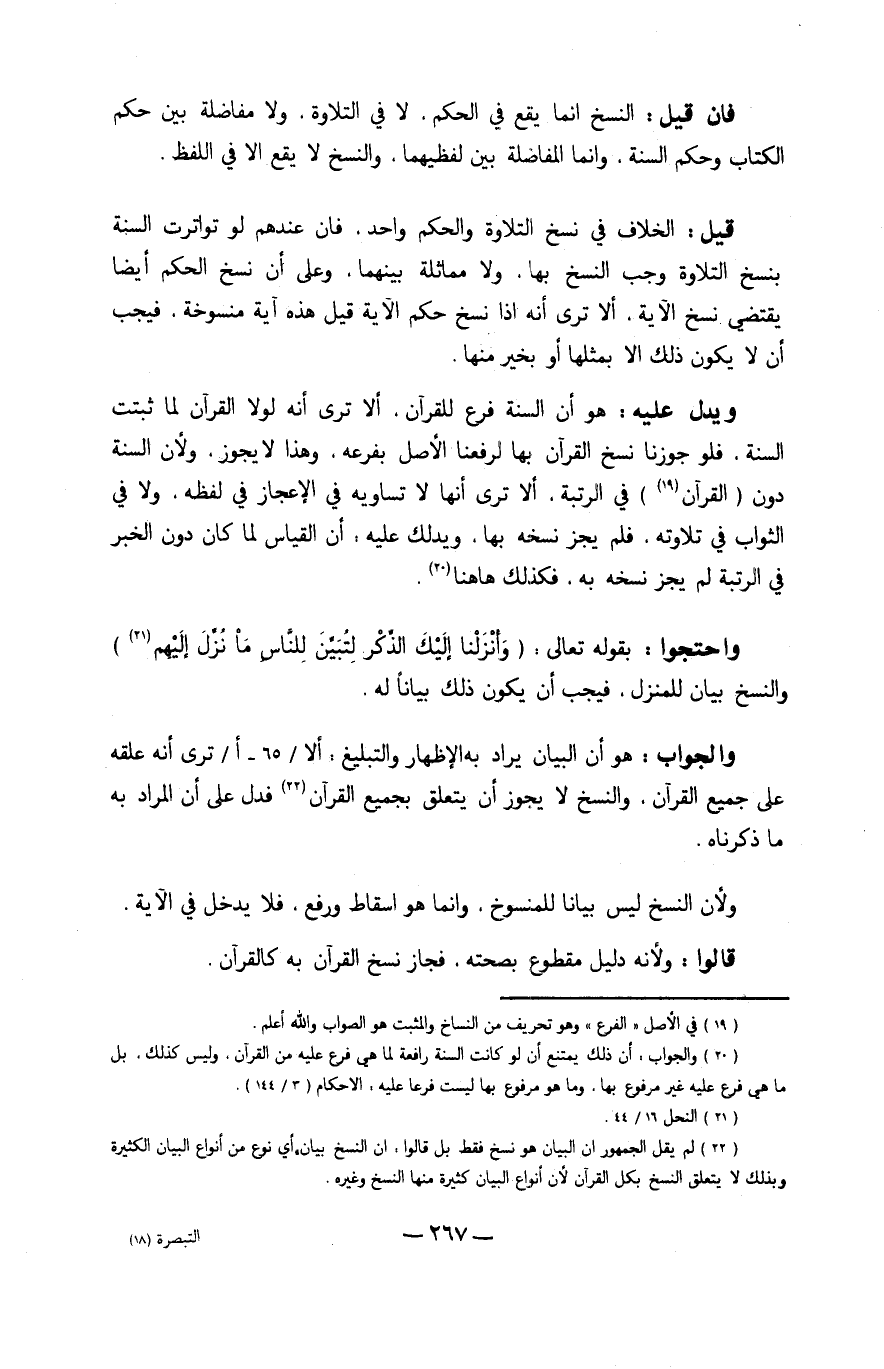 فان قيل : النسخ انما يقع في الحكم ، لا في التلاوة ، ولا مفاضلة بين حكم
الكتاب وحكم السنة ، وانما المفاضلة بين لفظيهما ، والنسخ لا يقع الا في اللفظ .
قيل : الخلاف في نسخ التلاوة والحكم واحد ، فان عندهم لو تواترت السنة
بنسخ التلاوة وجب النسخ بها ، ولا مماثلة بينهما ، وعلى أن نسخ الحكم أيضا
يقتضي نسخ الآية ، ألا ترى أنه اذا نسخ حكم الآية قيل هذه آية منسوخة ، فيجب
أن لا يكون ذلك الا بمثلها أو بخير منها .
ويدل عليه : هو أن السنة فرع للقرآن ، ألا ترى أنه لولا القرآن لما ثبتت
السنة ، فلو جوزنا نسخ القرآن بها لرفعنا الأصل بفرعه ، وهذا لايجوز ، ولأن السنة
دون ( القرآن (١٩) ) في الرتبة ، ألا ترى أنها لا تساويه في الإعجاز في لفظه ، ولا في
الثواب في تلاوته ، فلم يجز نسخه بها ، ويدلك عليه : أن القياس لما كان دون الخبر
في الرتبة لم يجز نسخه به ، فكذلك هاهنا (٢٠) .
واحتجوا : بقوله تعالى : ( وَأَنْزَلْنا إِلَيْكَ الذِّكْر لِتُبَيِّنَ لِلنَّاسِ مَاْ نُزِّلَ إِلَيْهِم (٢١) )
والنسخ بيان للمنزل ، فيجب أن يكون ذلك بياناً له .
والجواب : هو أن البيان يراد به الإظهار والتبليغ : ألا / ٦٥ - أ / ترى أنه علقه
على جميع القرآن ، والنسخ لا يجوز أن يتعلق بجميع القرآن (٢٢) فدل على أن المراد به
ما ذكرناه .
ولأن النسخ ليس بيانا للمنسوخ ، وانما هو اسقاط ورفع ، فلا يدخل في الآية .
قالوا : ولأنه دليل مقطوع بصحته ، فجاز نسخ القرآن به كالقرآن .
( ١٩ ) في الأصل « الفرع » وهو تحريف من النساخ والمثبت هو الصواب والله أعلم .
( ٢٠ ) والجواب : أن ذلك يمتنع أن لو كانت السنة رافعة لما هي فرع عليه من القرآن ، وليس كذلك ، بل
ما هي فرع عليه غير مرفوع بها ، وما هو مرفوع بها ليست فرعا عليه : الاحكام ( ٣ / ١٤٤ ) .
( ٢١ ) النحل ١٦ / ٤٤ .
( ٢٢ ) لم يقل الجمهور ان البيان هو نسخ فقط بل قالوا : ان النسخ بيان،أي نوع من أنواع البيان الكثيرة
وبذلك لا يتعلق النسخ بكل القرآن لأن أنواع البيان كثيرة منها النسخ وغيره .
— ٢٦٧ —
التبصرة (١٨)